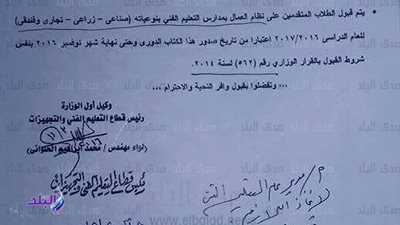 يتم قبول الطلاب المتقدمين على نظام العمال بمدارس التعليم الفني بنوعياته (صناعى - زراعى - تجارى وفندقى)
للعام الدراسى ٢٠١٧/٢٠١٦ اعتبارا من تاريخ صدور هذا الكتاب الدورى وحتى نهاية شهر نوفمبر ٢٠١٦ بنفس
شروط القبول بالقرار الوزاري رقم (٥٦٢) لسنة ٢٠١٤.
... وتفضلوا بقبول وافر التحية والاحترام ...
وكيل أول الوزارة
رئيس قطاع التعليم الفني والتجهيزات
لواء مهندس / محمد
رئيس قطاع التعليم الفني والتجهيزات
مدير عام التعليم الفني
لاتخاذ اللازم
صدى البلد
www.elbalad.news